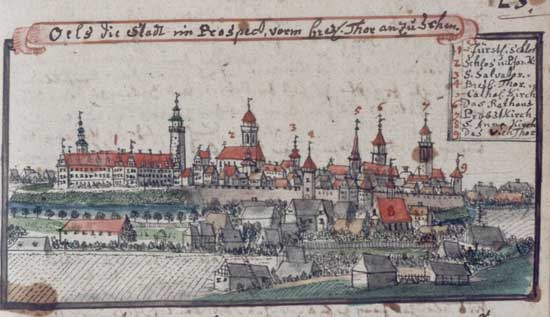 Oels die Stadt im Prospect, vorm Bresl. Thor anzusehen.
1 fürstl. Schlos
2 Schlos u. Pfar K.
3 S. Salvator.
4 Bresl. Thor.
5 Cathol. Kirch
6 Das Rathaus
7 Probstkirch
8 S. Anna Kirch
9 Das Vieh Thor
1 2 3 4 5 6 7 9
8